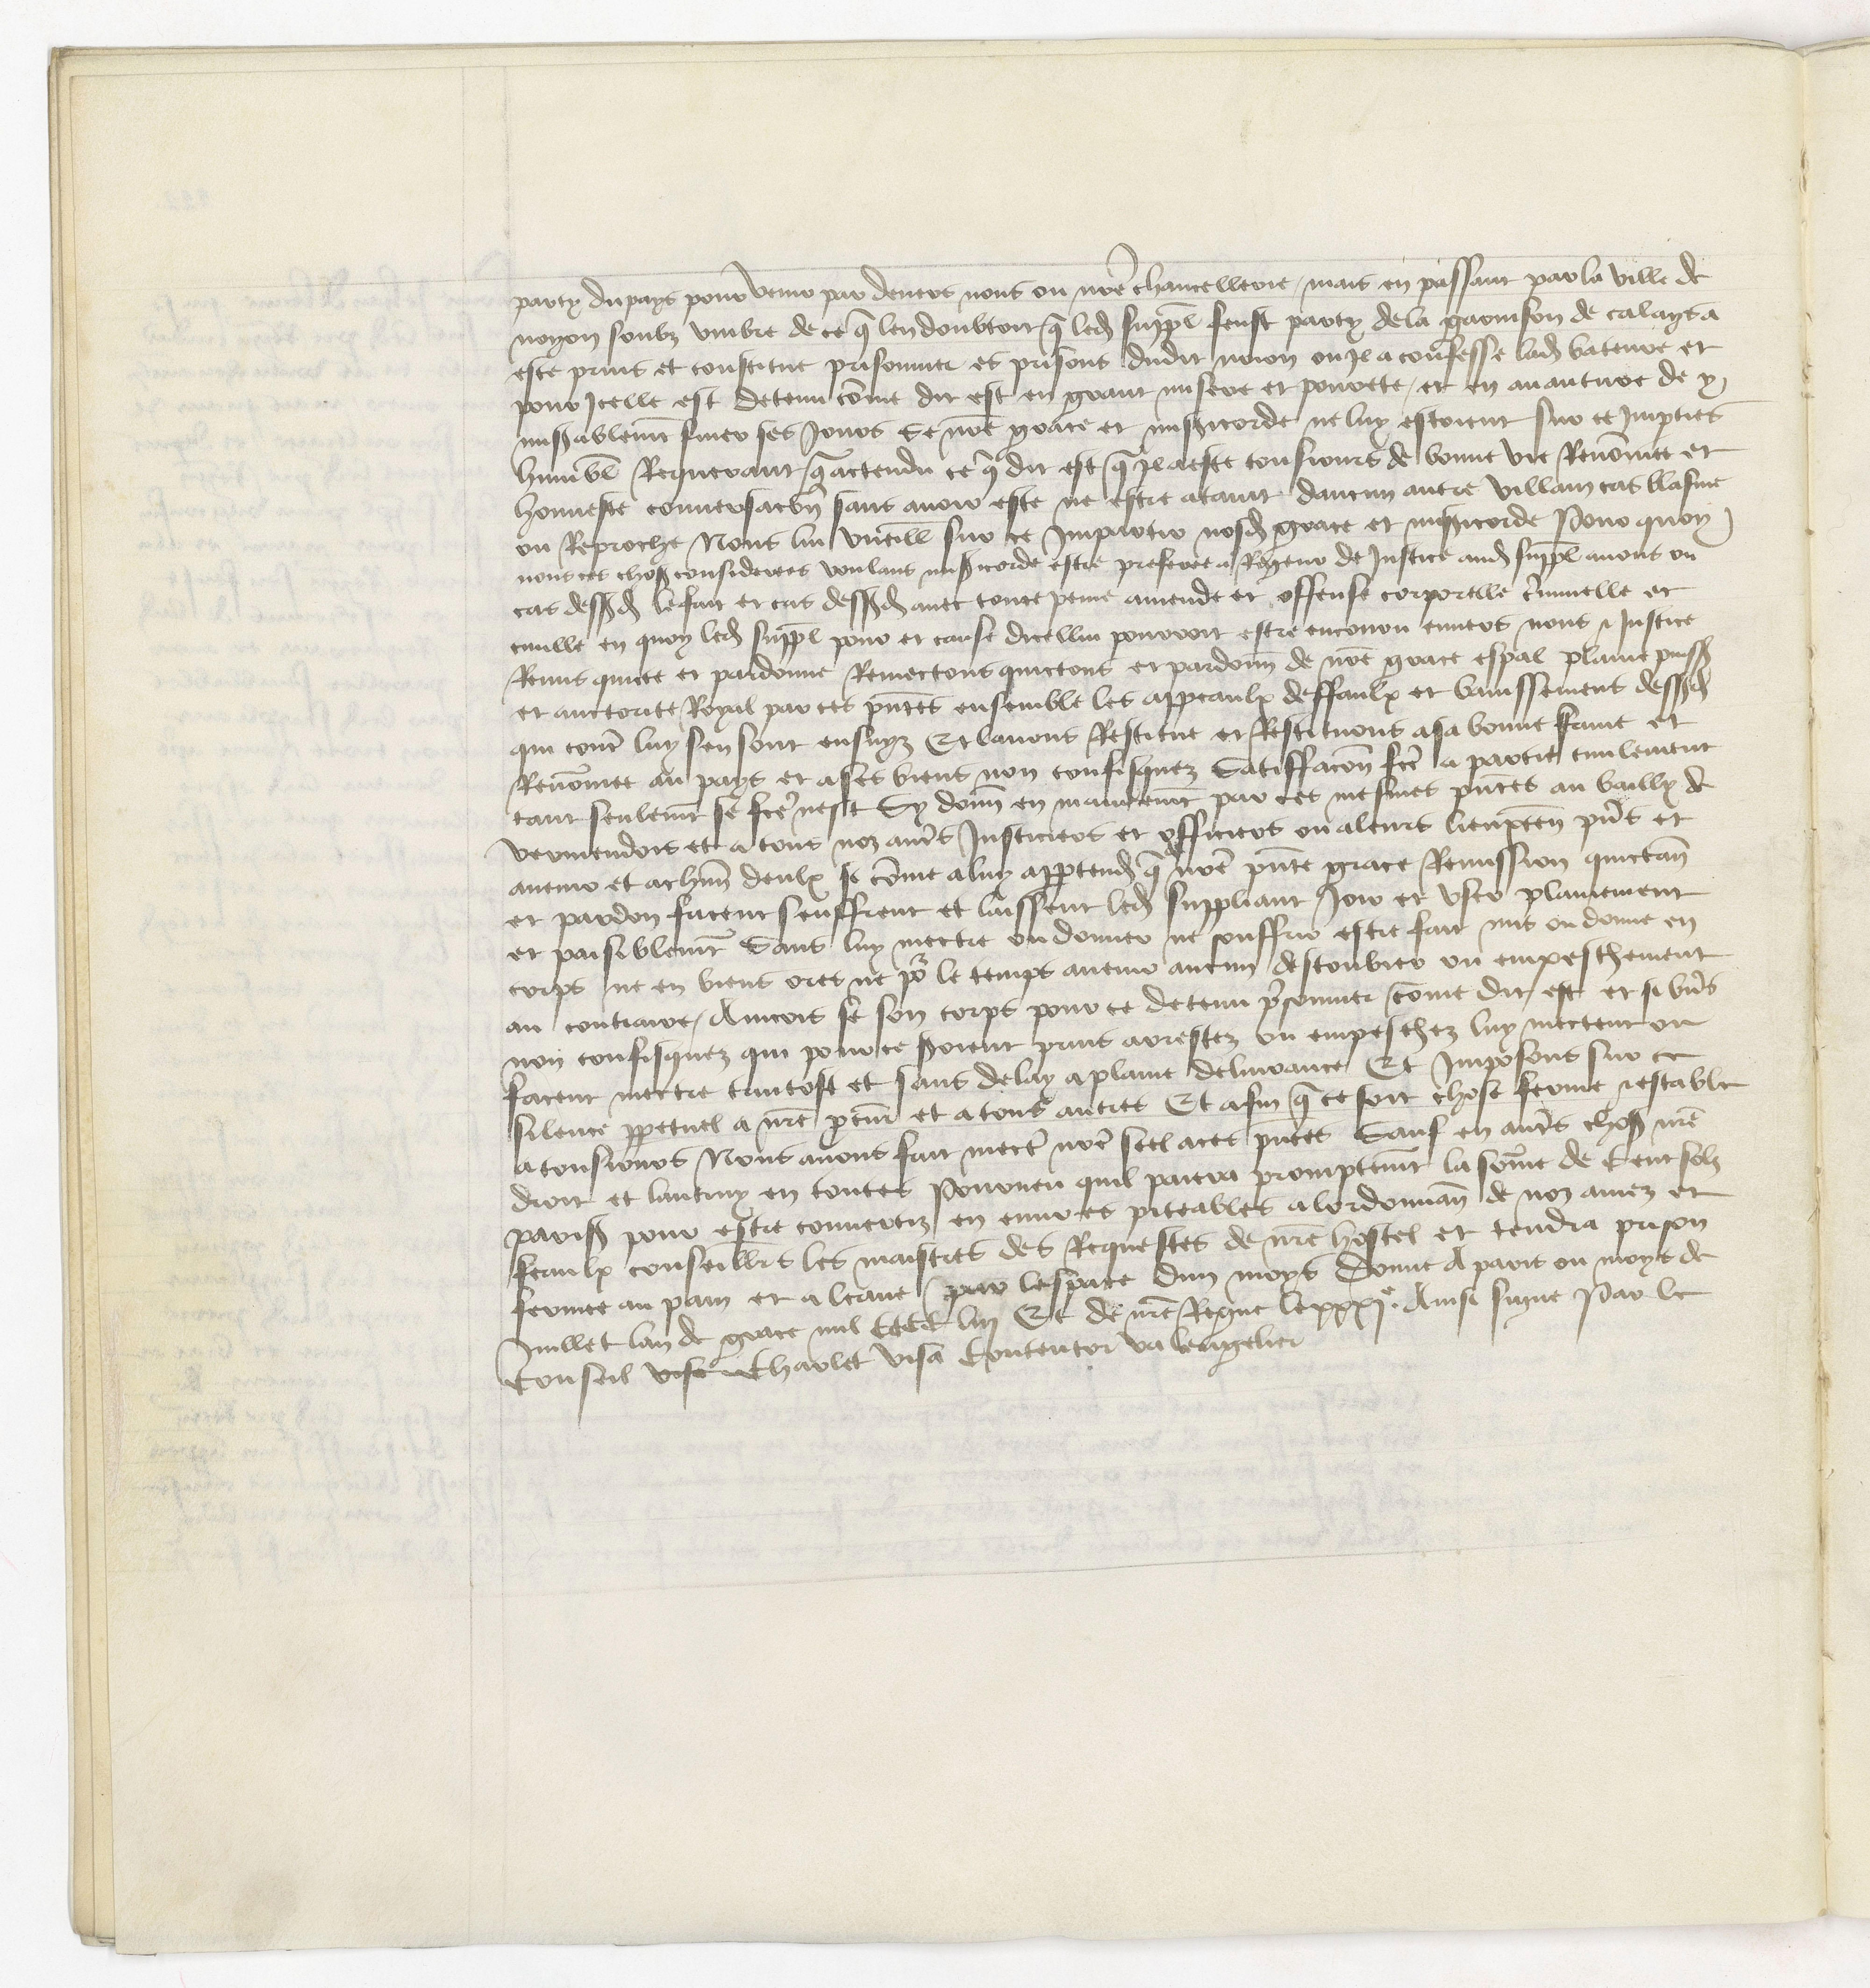 party du pays pour venir par devers nous ou nr̄e chancellerie, mais en passant par la ville de
noyon soubz umbre de ce q̄ len doubtoit q̄ led suppl̄ feust party de la garnison de calays a
este prins et constitue prisonnier es prisons dudit noion ou il a confesse lad bateure et
pour icelle est detenu com̄e dit est en grant misere et povrete, et en avanture de y
mis̄ablem̄t finer ses jours se nr̄e grace et mis̄icorde ne luy estoient sur ce imp̄ties
humbl̄ requerant q̄ actendu ce q̄ dit est q̄ il a este tousiours de bonne vie renōmee et
honneste conversacōn sans avoir este ne estre ataint daucun autre villain cas blasme
ou reproche Nous lui vueill̄ sur ce impartir nosd grace et mis̄icorde Pour quoy
nous ces chos̄ considerees voulans mis̄icorde estre preferee a rigeur de justice aud suppl̄ avons ou
cas dessusd le fait et cas dessusd avec toute peine amende et offense corporelle crīminelle et
civille en quoy led suppl̄ pour et cause dicellui pourroit estre encouru envers nous et justice
Remis quicte et pardonne Remectons quictons et pardonn̄ de nr̄e grace esp̄al plaine puiss̄
et auctorite Royal par ces pn̄tes ensemble les appeaulx deffaulx et bannissement dessusd
qui contr̄ luy sen sont ensuyz Et lavons Restitue et Restituons a sa bonne fame et
Renōmee au pays et a ses biens non confisquez Satiffacōn fc̄e a partie civilement
tant seulem̄t se fc̄e nest Sy donn̄ en mandem̄t par ces mesmes pn̄tes au bailly de
vermendois et a tous noz autr̄s justiciers et officiers ou a leurs lieuxten̄ pn̄s et
avenir et a chūn deulx se com̄e a luy app̄tendr̄ q̄ de nr̄e pn̄te grace Remission quictan̄
et pardon facent seuffrent et laissent led suppliant joir et user plainement
et paisiblem̄t Sans luy mectre ou donner ne souffrir estre fait mis ou donne en
corps ne en biens ores ne po̅ le temps avenir aucun destourbier ou empeschement
au contraire, Aincois se son corps pour ce detenu pr̄isonnier com̄e dit est et si biēs
non confisquez qui pour ce soient prins arrestez ou empeschez luy mectent ou
facent mectre tantost et sans delay a plaine delivrance Et imposons sur ce
silence pp̄etuel a nr̄e procūr et a tous autres Et afin q̄ ce soit chose ferme et estable
a tousiours Nous avons fait mectr̄ nr̄e seel a ces pn̄tes Sauf en autr̄s chos̄ nr̄e
droit et lautruy en toutes Pourveu quil paiera promptem̄t la som̄e de Cent solz
paris̄ pour estre convertiz en euvres piteables a lordonnan̄ de noz amez et
feaulx conseillers les maistres des Requestes de nr̄e hostel et tendra prison
fermee au pain et a leaue par lespace dun moys Donne A paris ou moys de
Juillet lan de grace mil CCCC liii Et de nr̄e Regne le xxxi.e Ainsi signe Par le
Conseil Charlet visa Contentor va lengelier